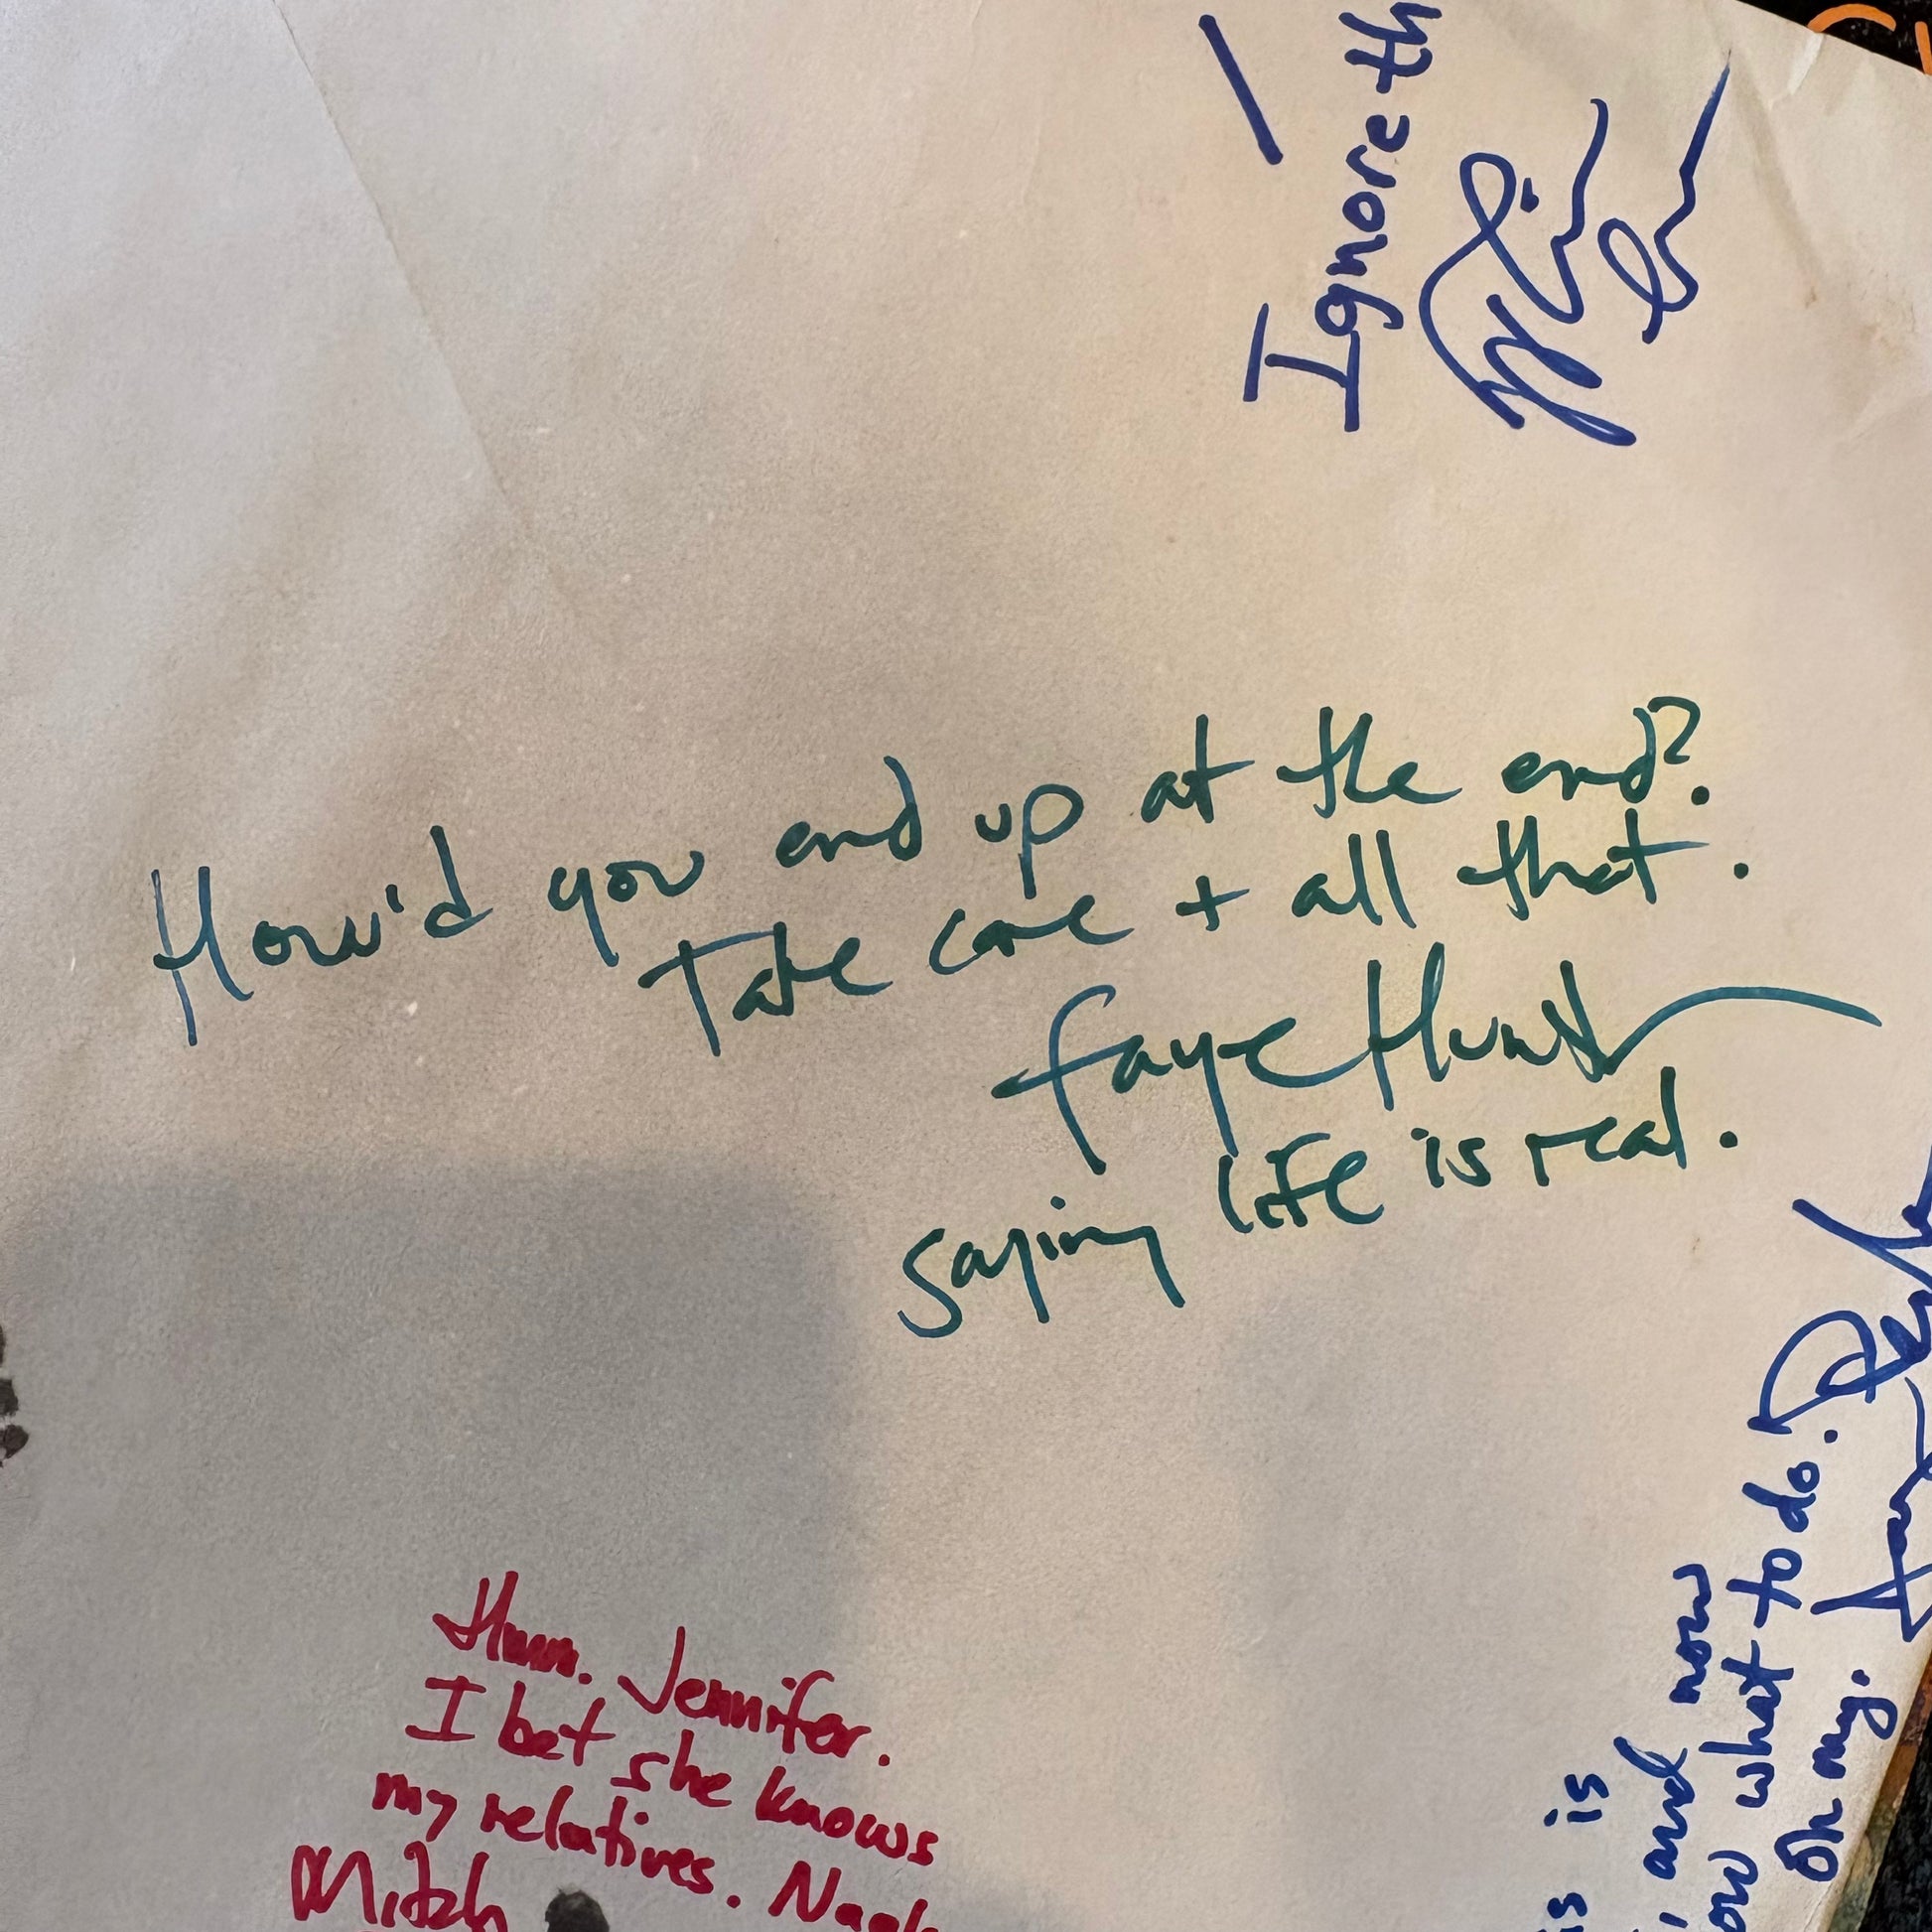 Ignore th
How'd you end up at the end?
Take care + all that.
Faye Hunter
saying life is real.
Hmm. Jennifer.
I bet she knows
my relatives. Nash
Mitch
is is
and now
ow what to do.
Oh my.